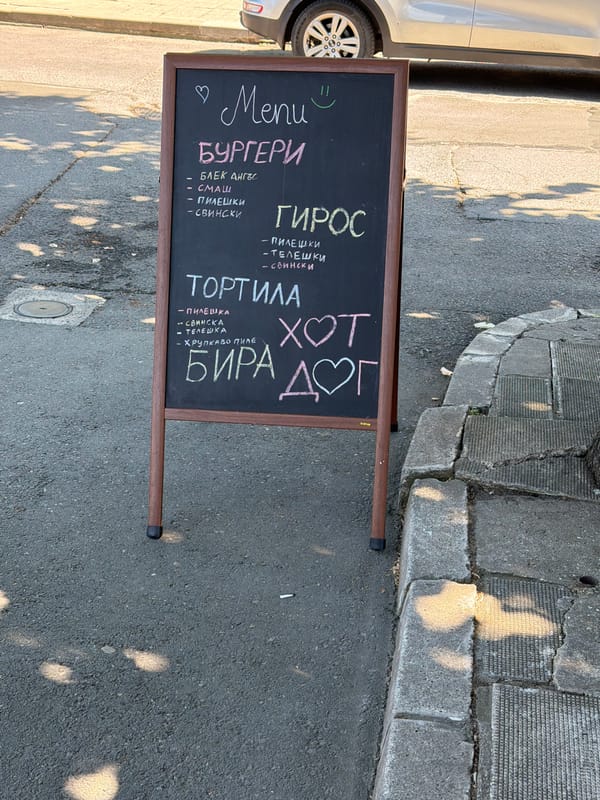 Menu
БУРГЕРИ
- БЛЕК АНГЪС
- СМАШ
- ПИЛЕШКИ
- СВИНСКИ
ГИРОС
- ПИЛЕШКИ
- ТЕЛЕШКИ
- СВИНСКИ
ТОРТИЛА
- ПИЛЕШКА
- СВИНСКА
- ТЕЛЕШКА
- ХРУПКАВО ПИЛЕ
БИРА
ХОТ
ДОГ